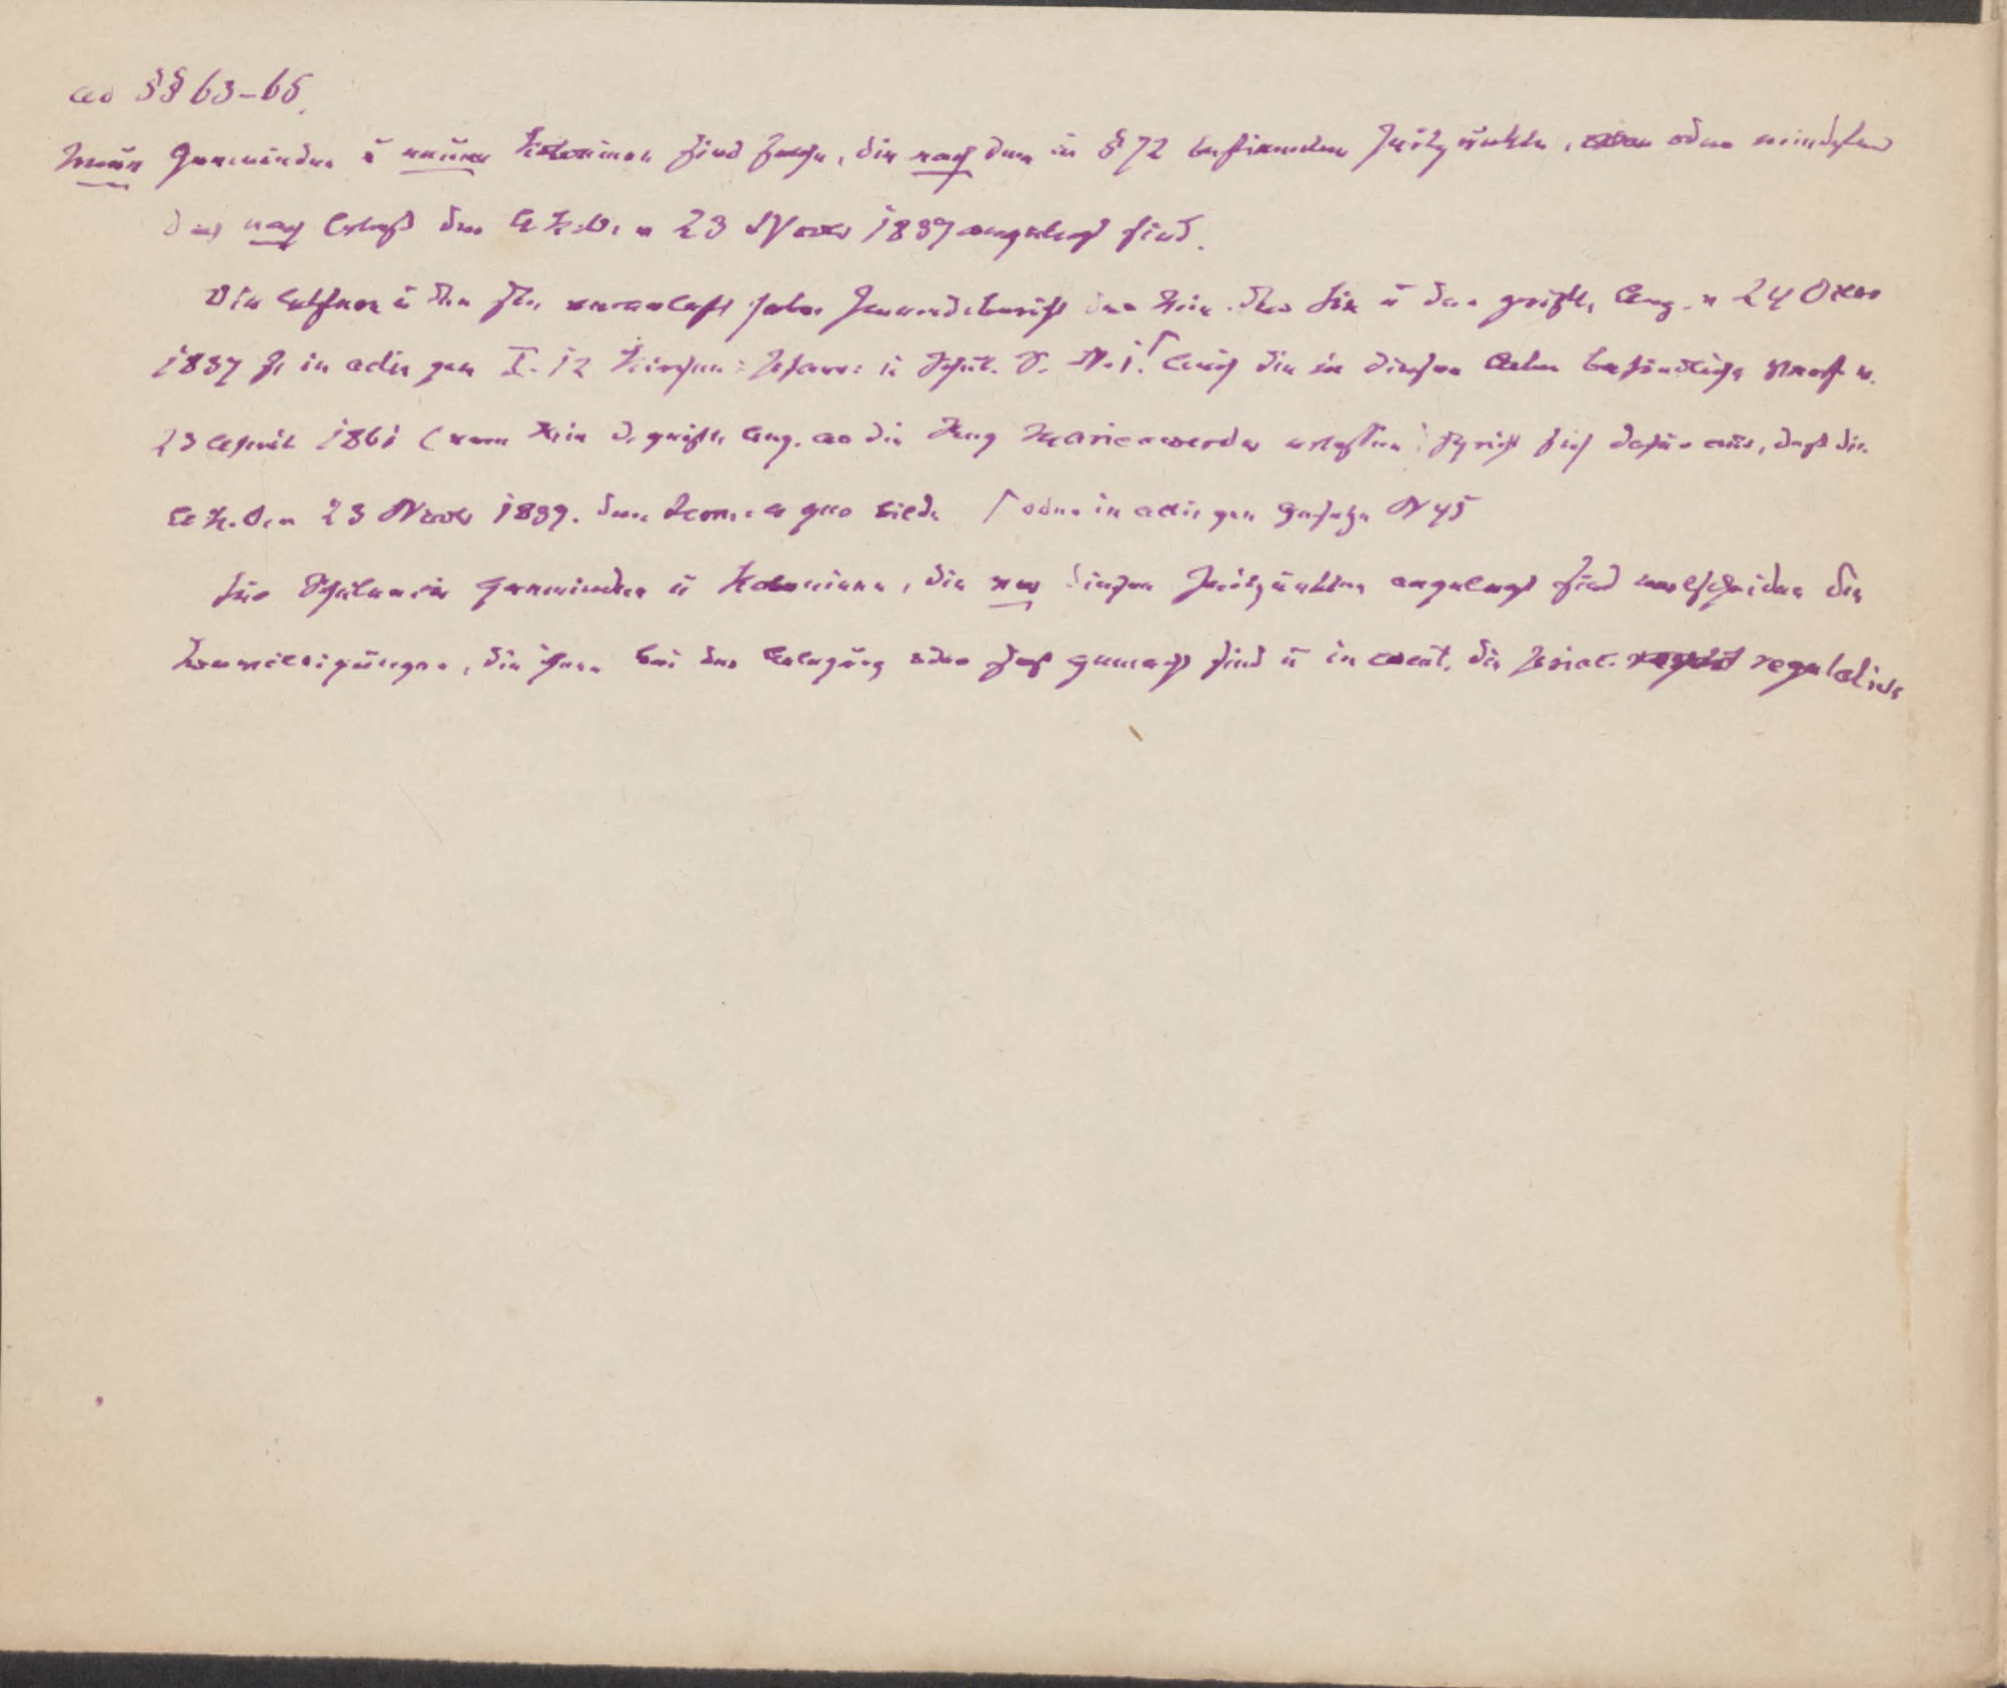 ad §§ 63-65.
Neue Gemeinden u neuen Kolonien sind solche, die nach dem in § 72 bestimmten Zeitpunkte, oder mindestens
das nach Erlaß der A.K.O. v 23 Novbr 1837 angelegt sind.
Die u der Min. der Fin u der geistl. Ang. v 24 Octbr
1837 in actis gen I. 12 Kirchen: Pfarr: u Schul. S. N. 1.⌈ Auch die in diesen Acten befindliche v.
23 April 1861 (vom Min d. geistl. Ang. an die Reg Marienwerder erlassen) spricht sich dafür aus, daß die
A.K.O. v 23 Novbr 1837. den a quo bilde ⌈ oder in actis gen Gesetze N 45
Für Schulen in Gemeinden u Kolonien, die nach diesem Zeitpunkte angelegt sind entscheiden die
Bewilligungen, die ihnen bei der Anlegung oder gemacht sind u in event. die regulative